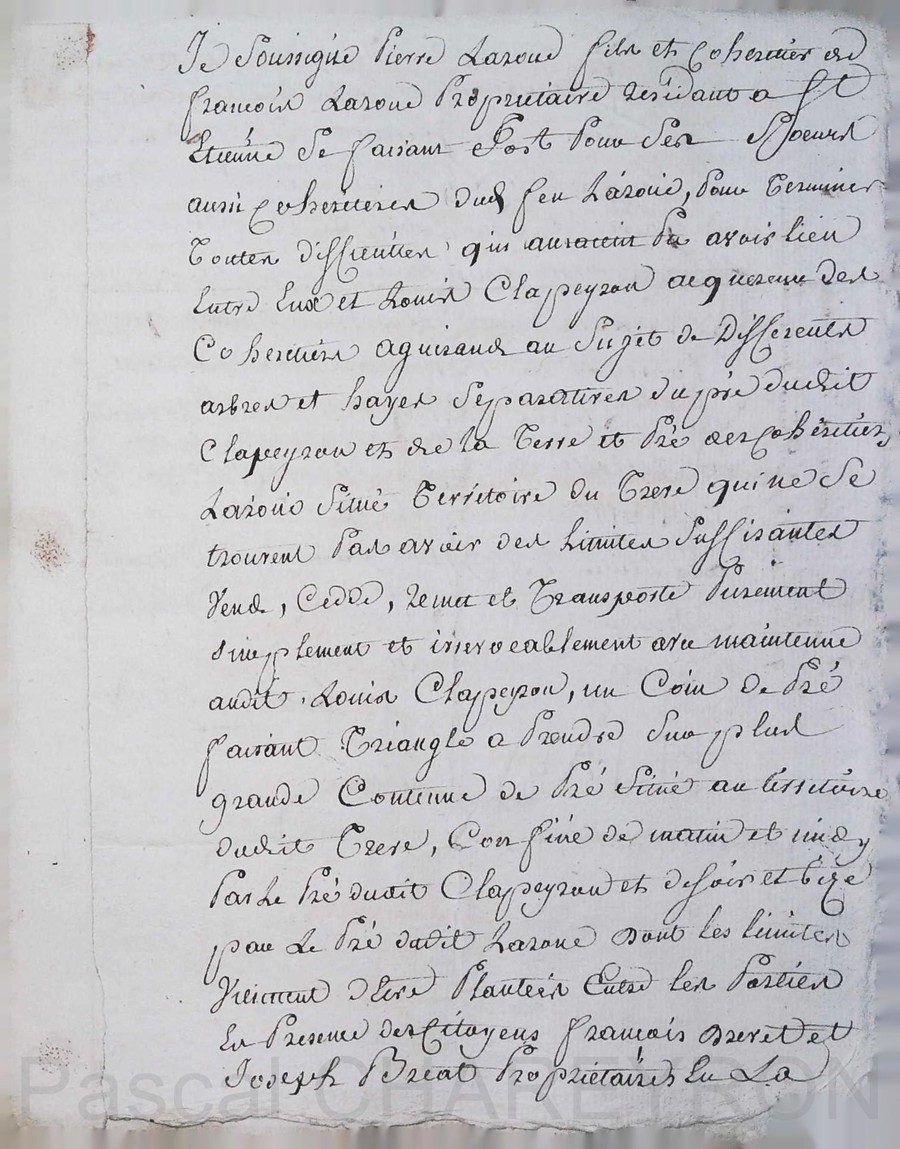 Je Soussigné Pierre Laroue fils et Coheritier de
francois Laroue Proprietaire residant a St
Etienne Se faisant fort Pour Ses Soeurs
aussi Coheritieres dud feu Laroue, Pour Terminer
Toutes difficultes qui auraoint Pu avoir lieu
Entre Eux et Louis Clapeyron acquereur des
Coheritiers aguiraud au Sujet de Differents
arbres et hayes Separatives du pré dudit
Clapeyron et de la Terre et Pré des Cohéritiers
Laroue Situé Territoire du Trere qui ne Se
trouvent Pas avoir des Limites Suffisantes
Vend, Cedde, remet et Transporte Purement
Simplement et irrevocablement avec maintenue
audit Louis Clapeyron, un Coin de Pré
faisant Triangle a Prendre Sur plus
grande Contenue de Pré Situé au territoire
dudit Trere, Confiné de matin et midy
Par Le Pré dudit Clapeyron et de soir et bize
par Le Pré dudit Laroue dont les limites
Viennent d'être Plantées Entre les Parties
En Presence des Citoyens francois et
Joseph Breat Proprietaires En La
Pascal CHAREYRON